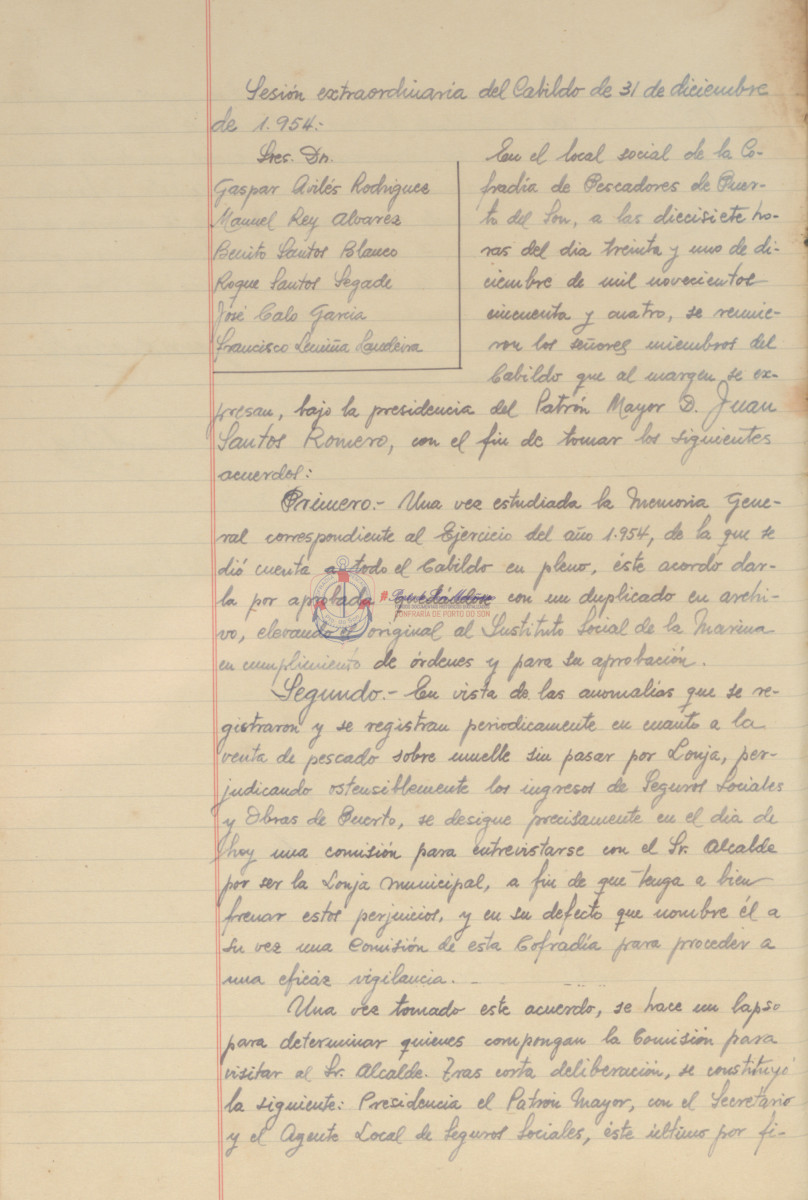 Sesión extraordinaria del Cabildo de 31 de diciembre
de 1.954.-
Sres. Dn.
Gaspar Avilés Rodriguez
Manuel Rey Alvarez
Benito Santos Blanco
Roque Santos Segade
José Calo Garcia
Francisco Lemiña Caudeira
En el local social de la Co-
fradía de Pescadores de Puer-
to del Son, a las diecisiete ho-
ras del dia treinta y uno de di-
ciembre de mil novecientos
cincuenta y cuatro, se reunie-
ron los señores miembros del
Cabildo que al margen se ex-
presan, bajo la presidencia del Patrón Mayor D. Juan
Santos Romero, con el fin de tomar los siguientes
acuerdos:
Primero.- Una vez estudiada la Memoria Gene-
ral correspondiente al Ejercicio del año 1.954, de la que se
dió cuenta a todo el Cabildo en pleno, éste acordo dar-
la por aprobada quedándose con un duplicado en archi-
vo, elevando el original al Instituto Social de la Marina
en cumplimiento de órdenes y para su aprobación.
Segundo.- En vista de las anomalías que se re-
gistraron y se registran periodicamente en cuanto a la
venta de pescado sobre muelle sin pasar por Lonja, per-
judicando ostensiblemente los ingresos de Seguros Sociales
y Obras de Puerto, se designe precisamente en el dia de
hoy una comisión para entrevistarse con el Sr. Alcalde
por ser la Lonja municipal, a fin de que tenga a bien
frenar estos perjuicios, y en su defecto que nombre él a
su vez una Comisión de esta Cofradía para proceder a
una eficáz vigilancia.-
Una vez tomado este acuerdo, se hace un lapso
para determinar quienes compongan la Comisión para
visitar al Sr. Alcalde. Tras corta deliberación, se constituyó
la siguiente: Presidencia el Patrón Mayor, con el Secretario
y el Agente Local de Seguros Sociales, éste último por fi-
CONFRARÍA DE PORTO DO SON